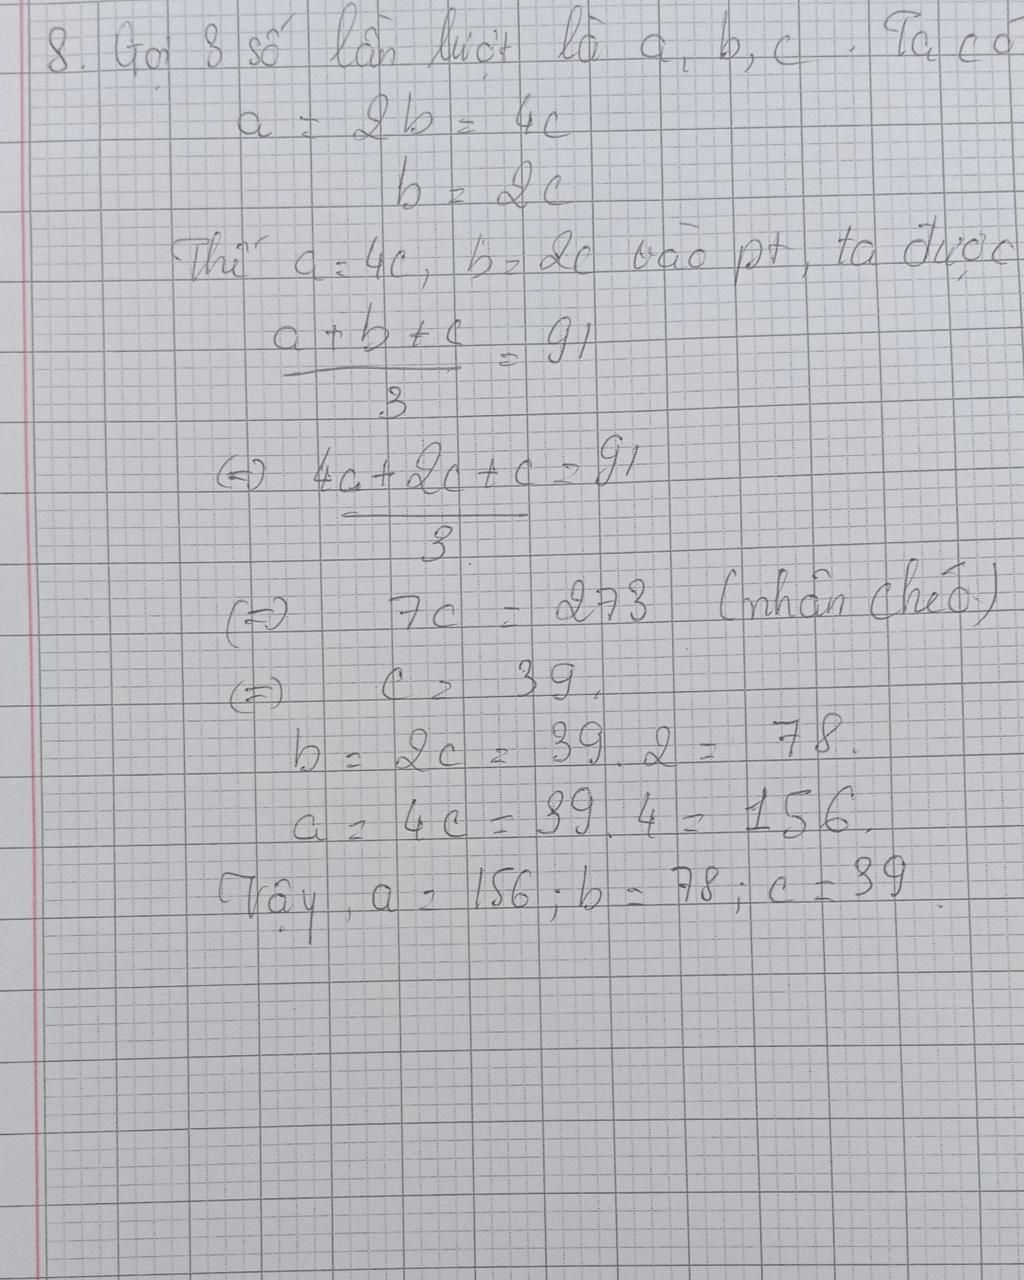 8. Gọi 3 số lần lượt là a, b, c. Ta có
a = 2b = 4c
b = 2c
Thế a = 4c, b = 2c vào pt, ta được
a + b + c
= 91
3
(=) 4c + 2c + c = 91
3
(=) 7c = 273 (nhân chéo)
(=) c = 39.
b = 2c = 39 . 2 = 78.
a = 4c = 39 . 4 = 156.
Vậy, a = 156 ; b = 78 ; c = 39.